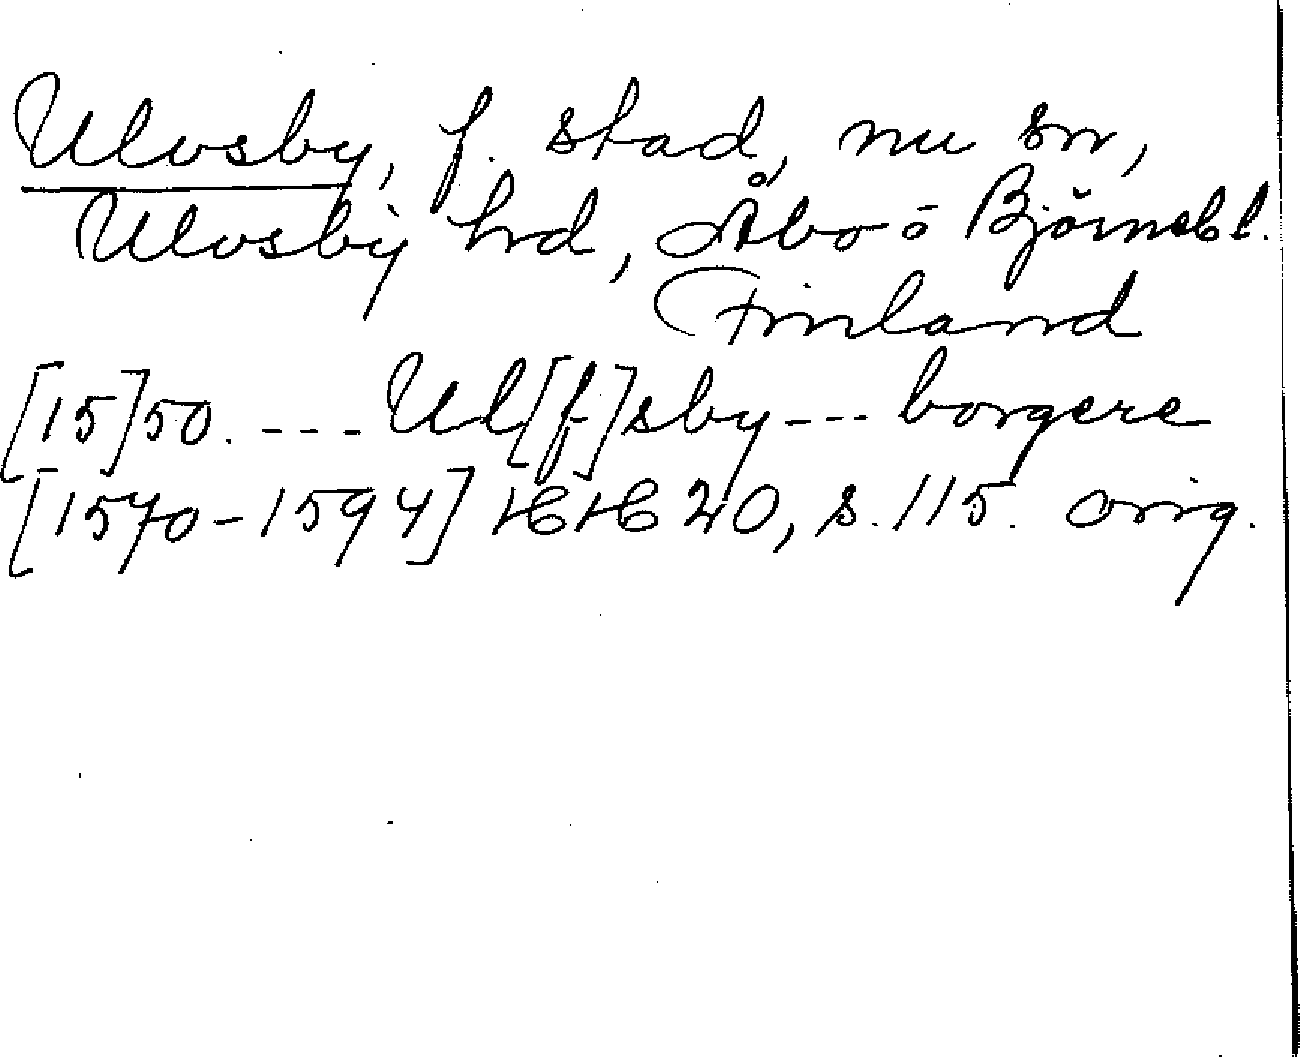 Ulvsby, f. stad, nu sn,
Ulvsby hrd, Åbo o Björnebl.
Finland
[15]50. --- Ul[f]sby --- borgere
[1570-1594] HH 20, s. 115. orig.